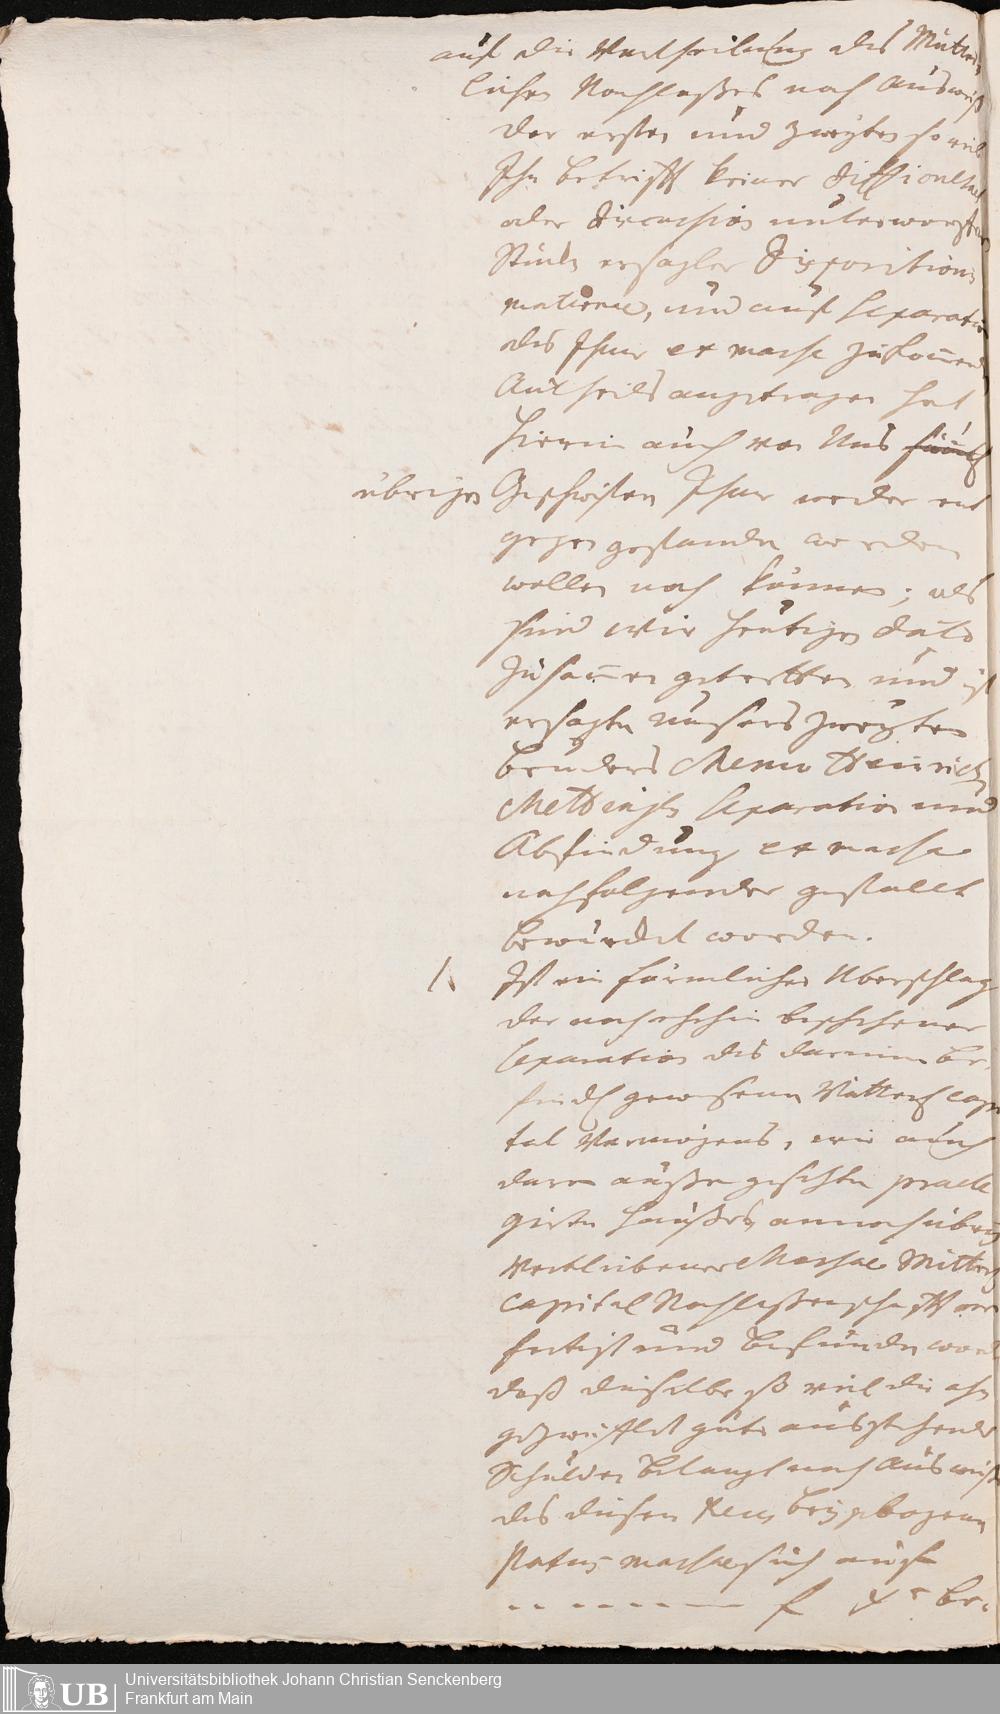 auf die Vertheilung des Mütter
lichen Nachlaßes nach Ausweiß
der ersten und zweyten so viel
Ihn betrifft keiner Difficultaet
oder Discussion unterworffen
Stück ersagter Dispositions
materie, und auf Separation
des Ihme ex massa zukom̅enden
Antheils angetragen hat
hierin auch von Uns
übrigen Geschwistern Ihme weder ent
gegen gestanden werden
wollen noch können; als
sind wir heutigen dato
zusam̅en getretten und ist
ersagten unsers zweyten
Bruders Menno Heinrich
Mettingh Separation und
Abfindung ex massa
nachfolgender gestallt
bewürcket worden.
1 Ist ein förmlicher Uberschlag
der nach
Separation des darinnen be-
findl. gewesenen Vätterl. Capi
tal Vermögens, wie auch
davon
Haußes annoch übrig
verbliebener Massae Mütterl.
Capital Nachlaßenschafft ver
fertigt und befunden worden
daß dieselbe so viel die ohn
gezweiffelt gute ausstehende
Schulden belangt nach Ausweiß
des diesem Recess beygebogenen
Status massae sich auf
- - - - - - - f xr be-
Universitätsbibliothek Johann Christian Senckenberg
Frankfurt am Main
UB